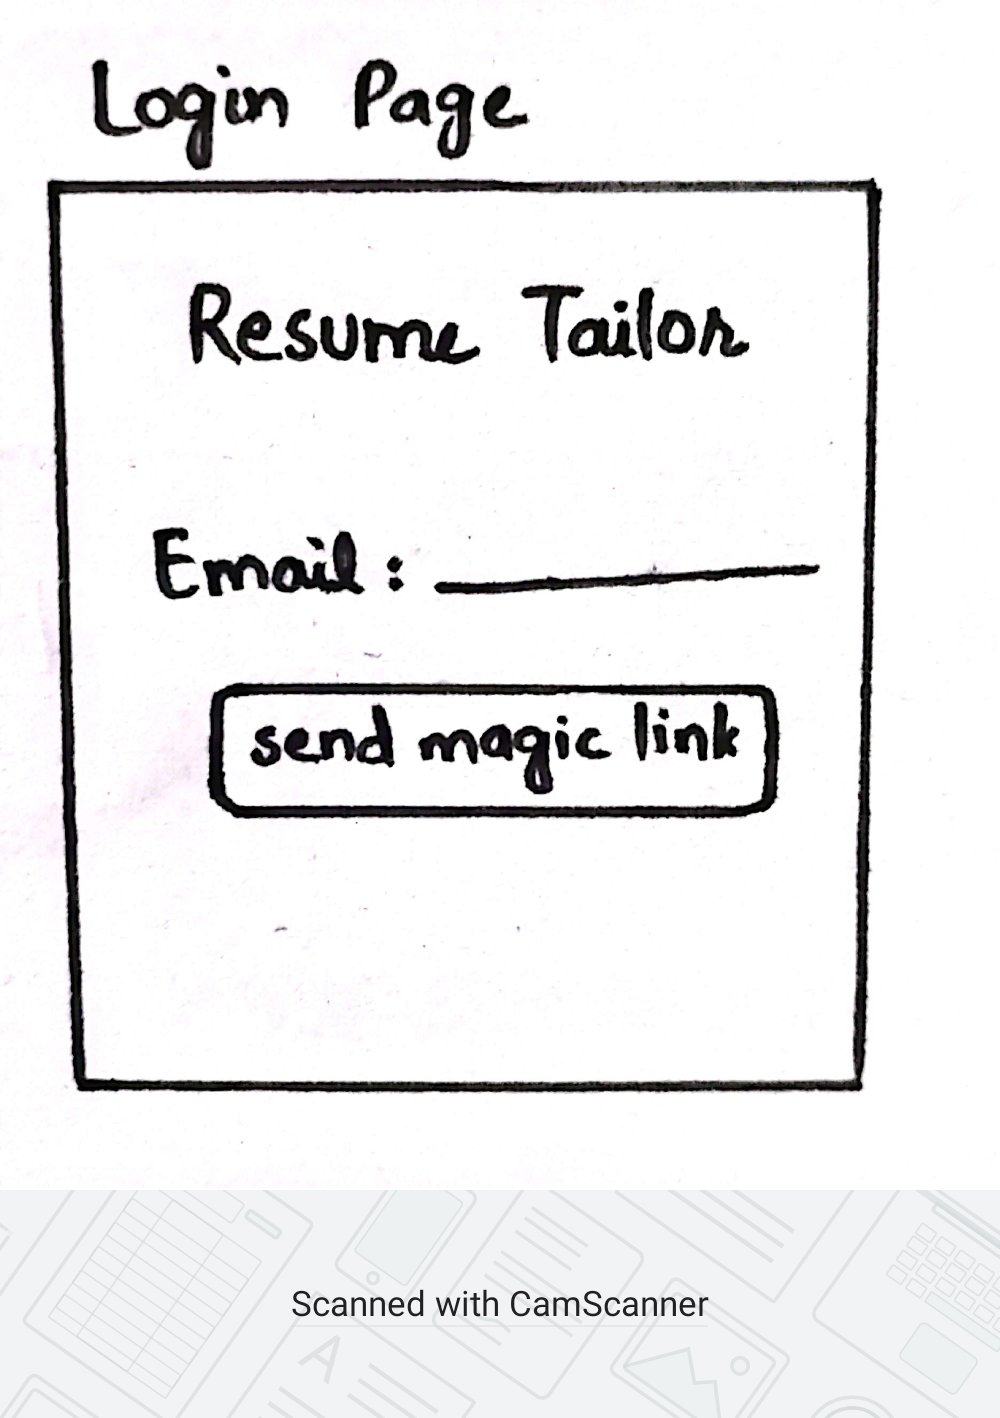 Login Page
Resume Tailor
Email :
send magic link
Scanned with CamScanner